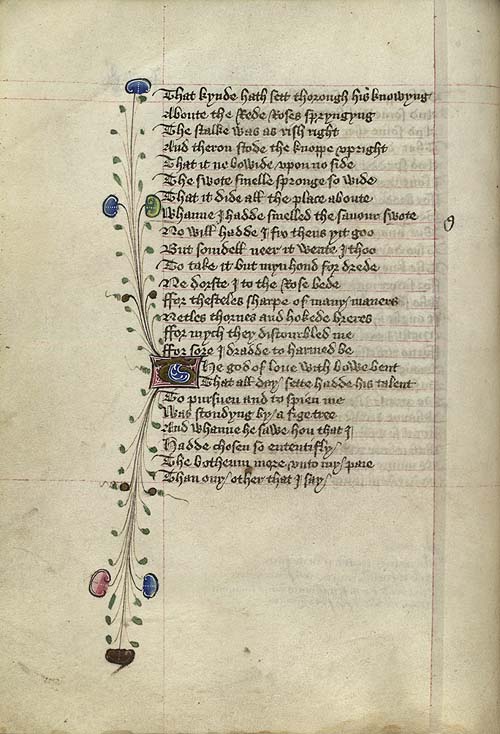 That kynde hath sett thorough his knowyng
Aboute the Rede Roses spryngyng
The stalke was as rish right
And theron stode the knoppe vpright
That it ne bowide vpon no side
The swote smelle spronge so wide
That it dide all the place aboute
Whanne I hadde smelled the sauour swote
No will hadde I fro thens yit goo
But somdell neer it wente I thoo
To take it but myn hond for drede
Ne dorste I to the Rose bede
ffor thesteles sharpe of many maners
Netles thornes and hokede breres
ffor mych they distourbled me
ffor sore I dradde to harmed be
The god of loue with bowe bent
That all day sette hadde his talent
To pursuen and to spien me
Was stondyng by a fige tree
And whanne he sawe hou that I
Hadde chosen so ententifly
The bothoum more vnto my paie
Than ony other that I say